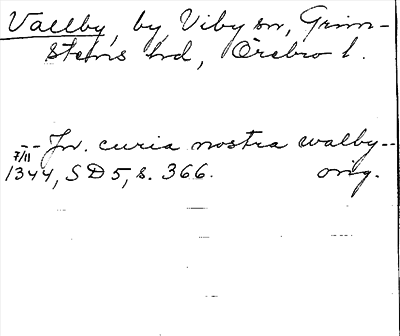 Vallby, by, Viby sn, Grim-
stens hd, Örebro l.
-- Jn. curia nostra walby --
7/11
1344, SD 5, s. 366. orig.